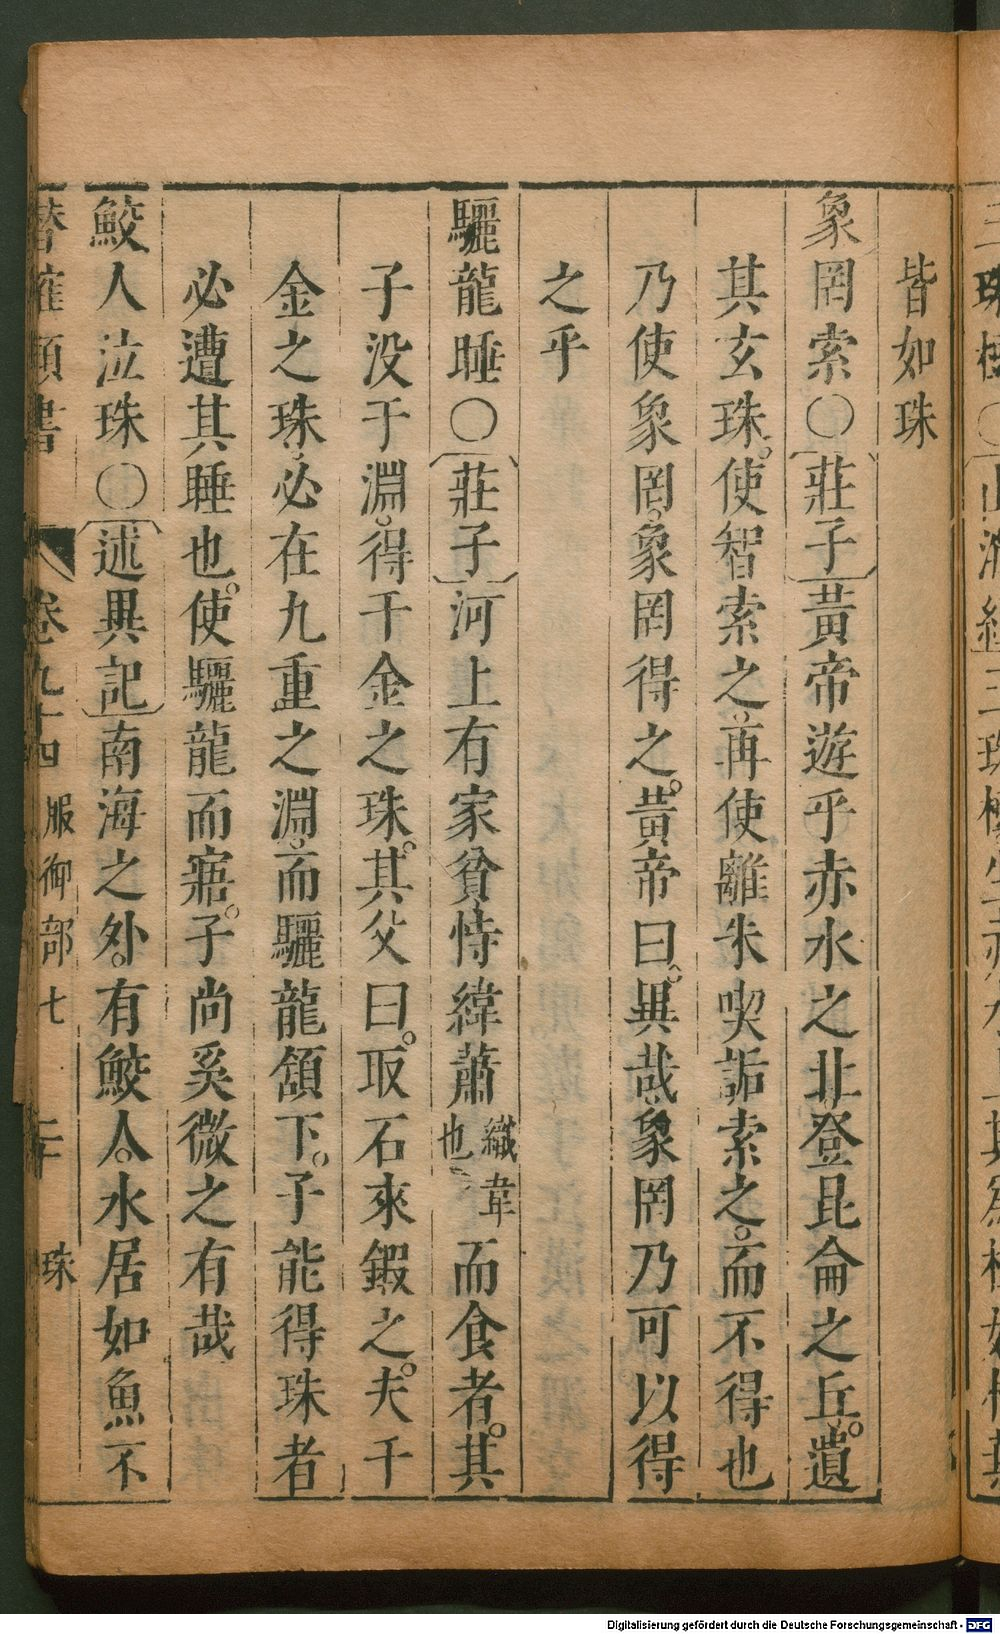 皆如珠
象罔索〇莊子黃帝遊乎赤水之北登昆侖之丘。遺
其玄珠。使智索之再使離朱喫詬索之。而不得也
乃使象罔。象罔得之。黃帝曰。異哉象罔乃可以得
之乎
驪龍睡〇莊子河上有家貧恃緯蕭織葦也而食者。其
子没于淵。得千金之珠。其父曰。取石來鍜之。夫千
金之珠。必在九重之淵。而驪龍頷下。子能得珠者
必遭其睡也。使驪龍而寤。子尚奚微之有哉
鮫人泣珠〇述異記南海之外。有鮫人。水居如魚不
潛確類書 卷九十四 服御部七 二十 珠
Digitalisierung gefördert durch die Deutsche Forschungsgemeinschaft - DFG